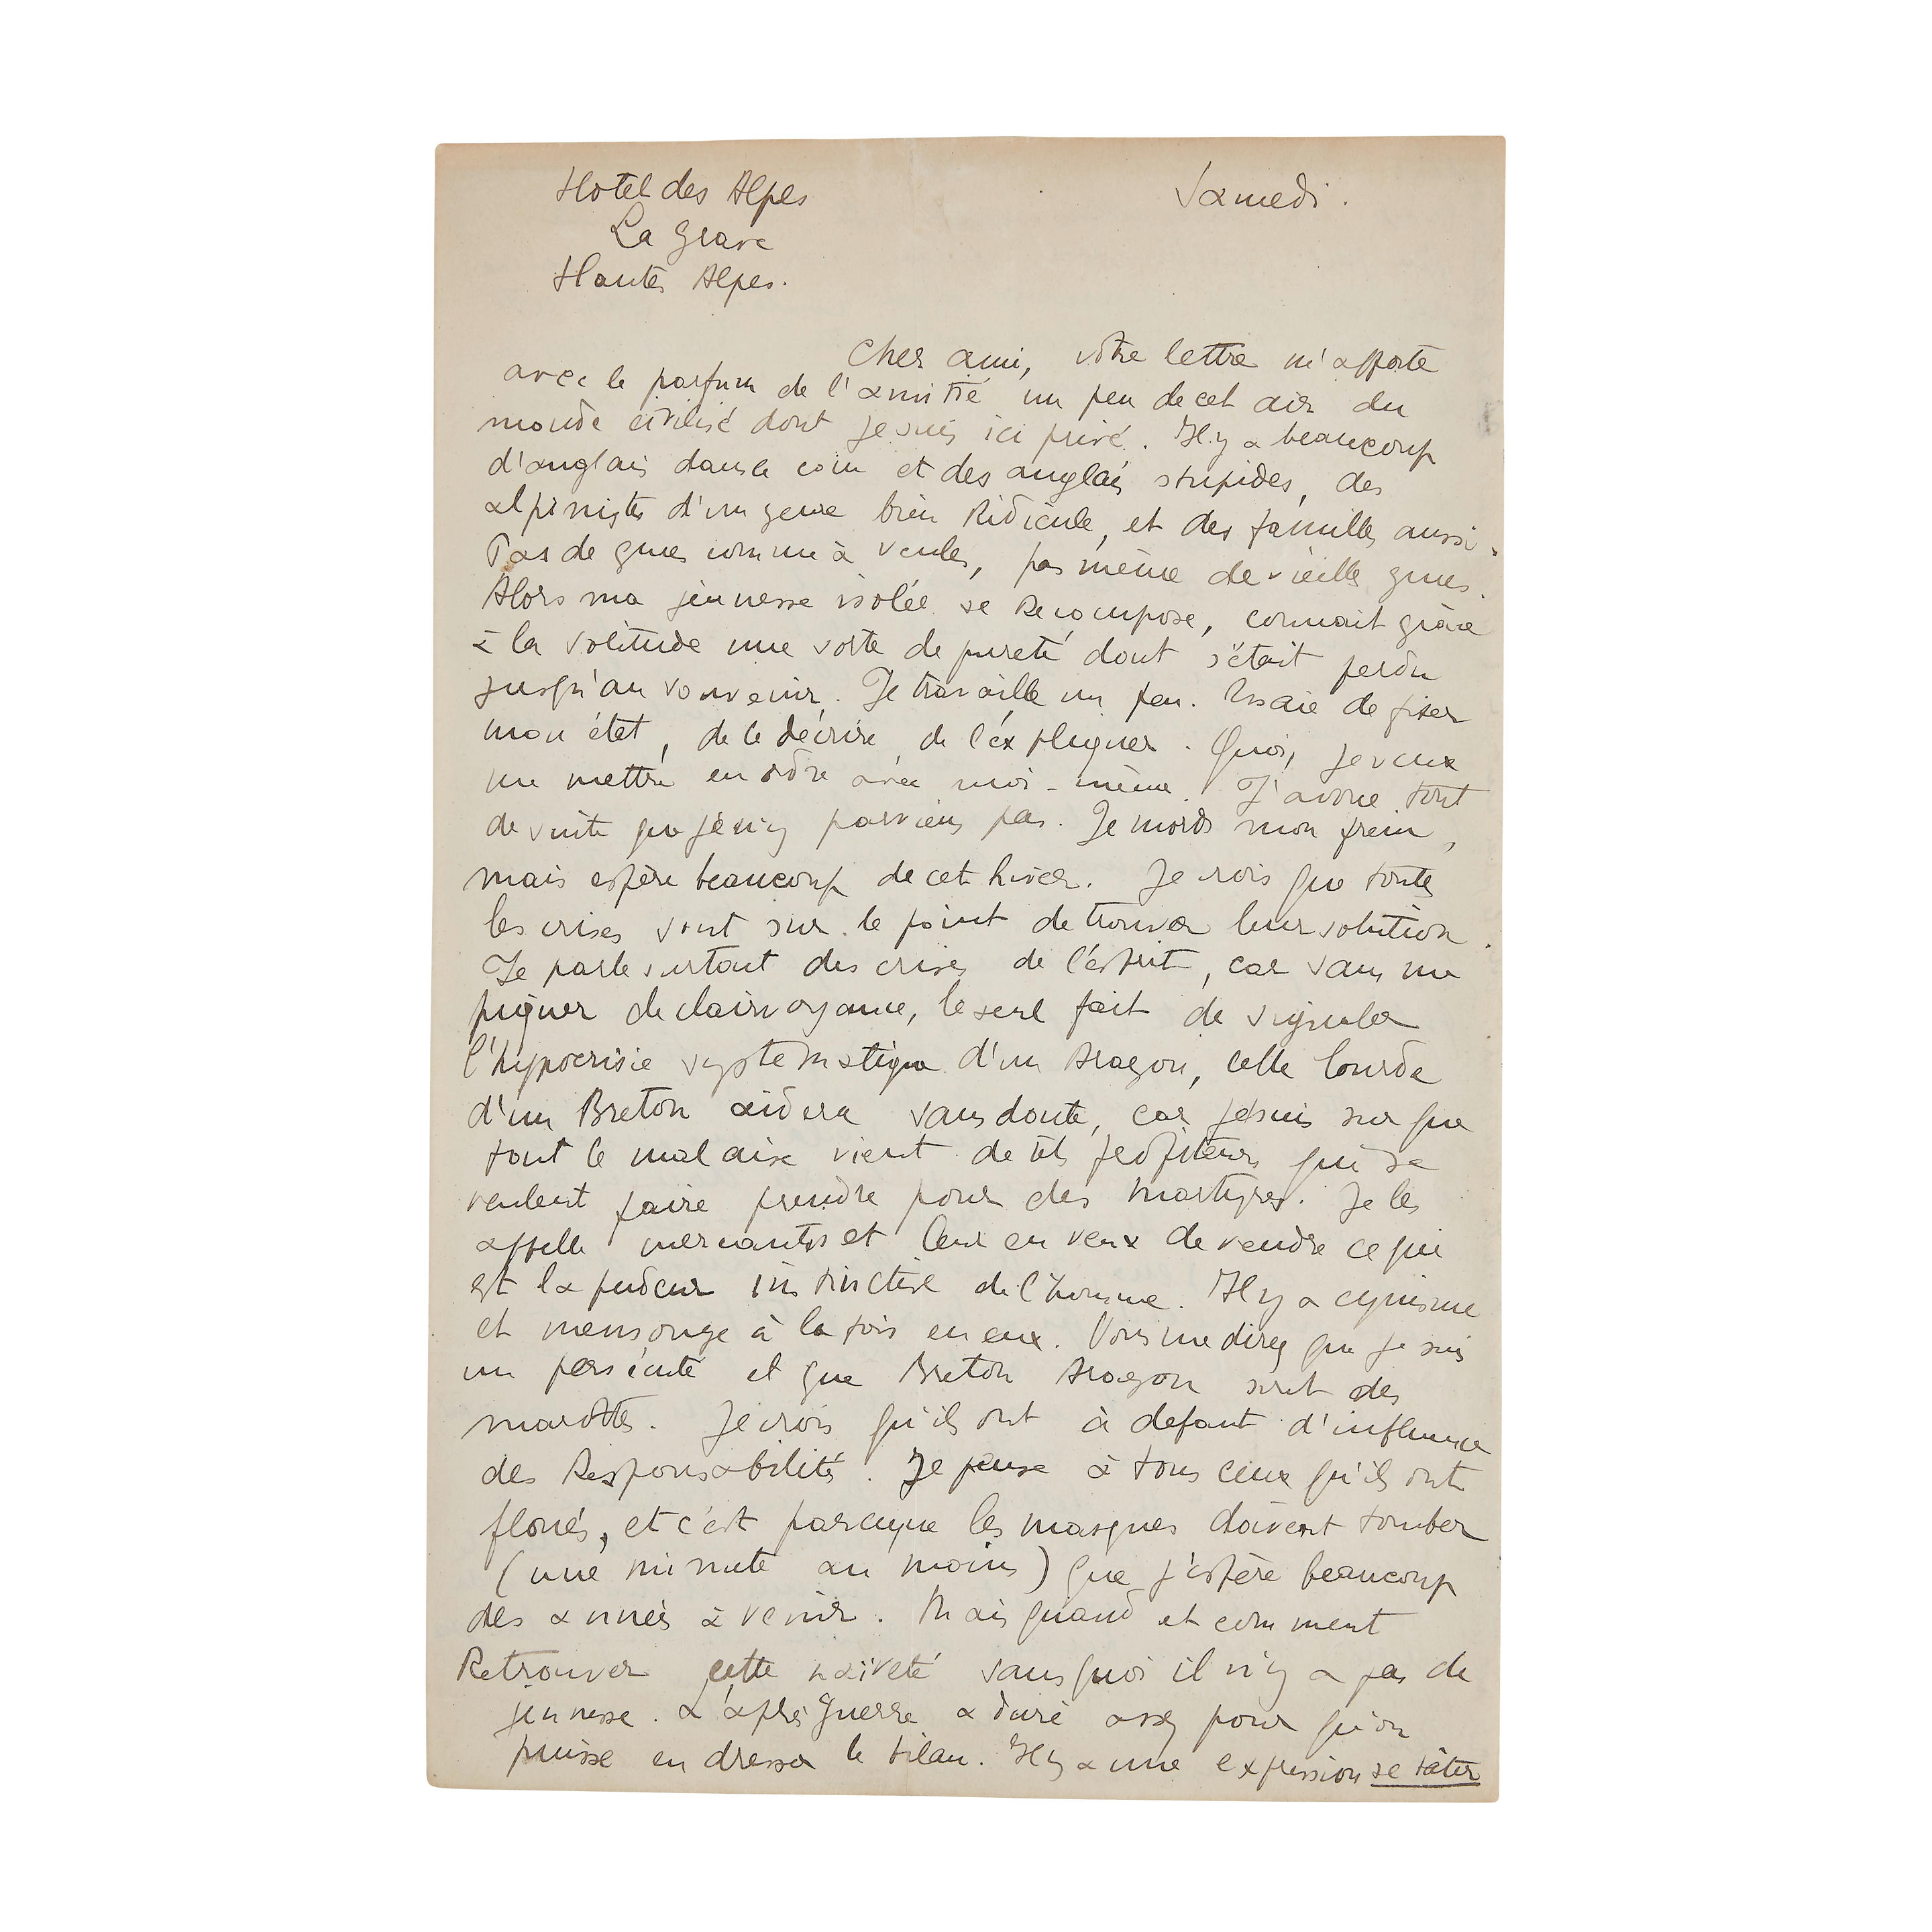 Hotel des Alpes
Samedi.
La Grave
Hautes Alpes.
Cher ami, votre lettre m'apporte
avec le parfum de l'amitié un peu de cet air du
monde civilisé dont je suis ici privé. Il y a beaucoup
d'anglais dans le coin et des anglais stupides, des
alpinistes d'un genre bien Ridicule, et des familles aussi.
Pas de grues comme à , pas même de vieilles grues.
Alors ma jeunesse isolée se Recompose, connait grâce
à la solitude une sorte de pureté dont s'était perdu
jusqu'au souvenir. Je travaille un peu. Essaie de fixer
mon état, de le décrire, de l'expliquer. Quoi, je veux
me mettre en ordre avec moi-même. J'avoue tout
de suite que je n'y parviens pas. Je mords mon frein,
mais espère beaucoup de cet hiver. Je crois que toutes
les crises sont sur le point de trouver leur solution.
Je parle surtout des crises de l'esprit, car sans me
piquer de clairvoyance, le seul fait de signaler
l'hypocrisie systematique d'un Aragon, celle lourde
d'un Breton aidera sans doute, car je suis sur que
tout le malaise vient de tels profiteurs qui se
veulent faire prendre pour des martyres. Je les
appelle mercantis et leur en veux de vendre ce qui
est la pudeur instinctive de l'homme. Il y a cynisme
et mensonge à la fois en eux. Vous me direz que je suis
un persécuté et que Breton Aragon sont des
marottes. Je crois qu'ils ont à defaut d'influence
des Responsabilités. Je pense à tous ceux qu'ils ont
floués, et c'est parceque les masques doivent tomber
(une minute au moins) que j'espère beaucoup
des années à venir. Mais quand et comment
Retrouver cette naïveté sans quoi il n'y a pas de
jeunesse. L'après guerre a duré assez pour qu'on
puisse en dresser le bilan. Il y a une expression se tâter